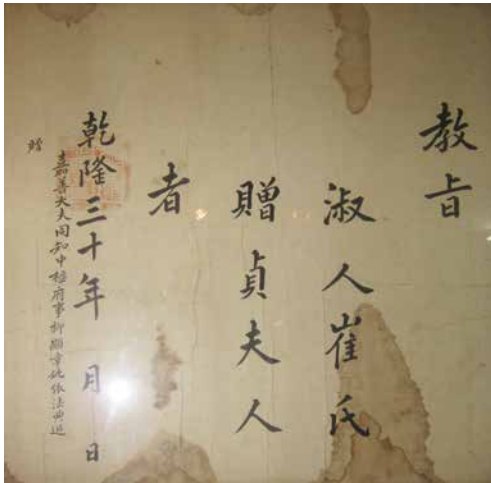 教旨
淑人崔氏
贈貞夫人
者
乾隆三十年 月 日
嘉善大夫同知中樞府事柳顯章妣依法典追
贈